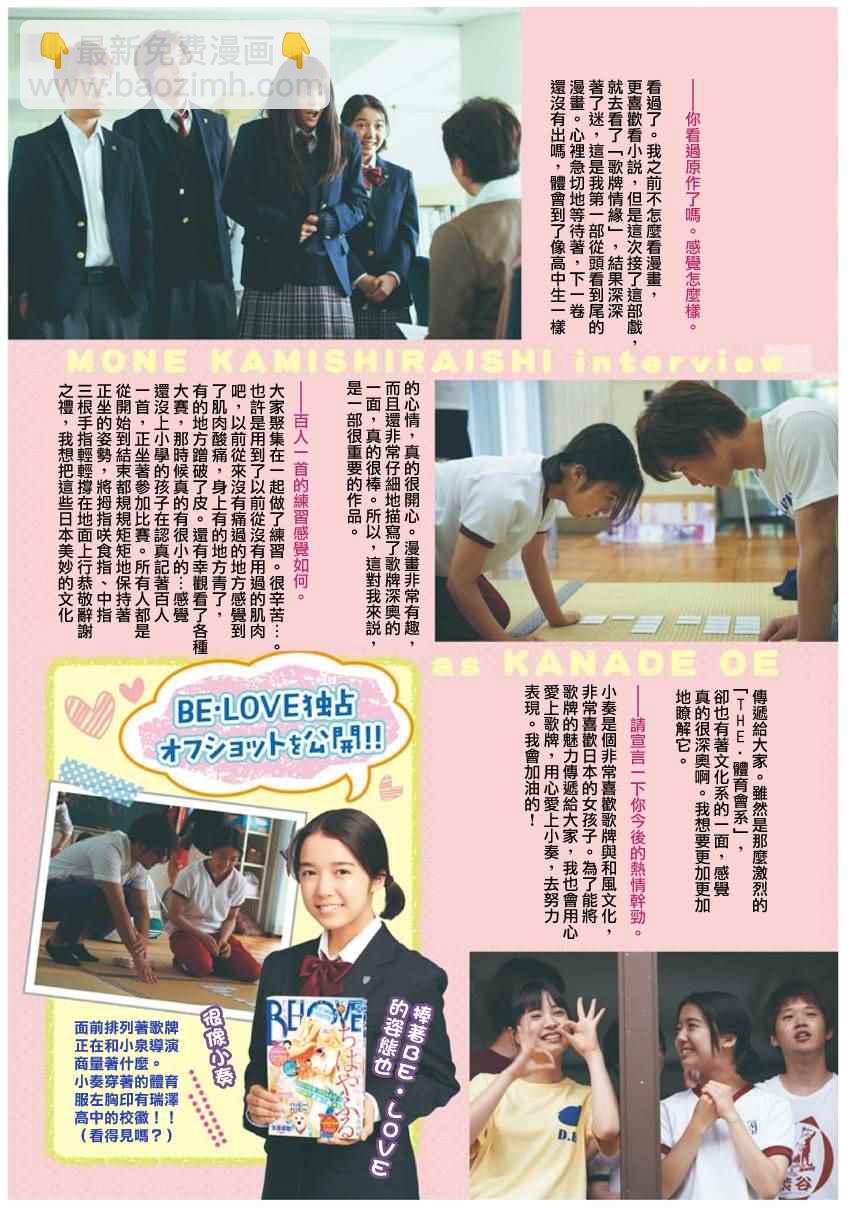 👇最新免费漫画👇
www.baozimh.com
——你看過原作了嗎。感覺怎麼樣。
看過了。我之前不怎麼看漫畫，
更喜歡看小說，但是這次接了這部戲，
就去看了「歌牌情緣」，結果深深
著了迷，這是我第一部從頭看到尾的
漫畫。心裡急切地等待著，下一卷
還沒有出嗎，體會到了像高中生一樣
MONE KAMISHIRAISHI interview
的心情，真的很開心。漫畫非常有趣，
而且還非常仔細地描寫了歌牌深奧的
一面，真的很棒。所以，這對我來說，
是一部很重要的作品。
——百人一首的練習感覺如何。
大家聚集在一起做了練習。很辛苦…。
也許是用到了以前從沒有用過的肌肉
吧，以前從來沒有痛過的地方感覺到
了肌肉酸痛，身上有的地方青了，
有的地方蹭破了皮。還有幸觀看了各種
大賽，那時候真的有很小的…感覺
還沒上小學的孩子在認真記著百人
一首，正坐著參加比賽。所有人都是
從開始到結束都規規矩矩地保持著
正坐的姿勢，將拇指咲食指、中指
三根手指輕輕撐在地面上行恭敬辭謝
之禮，我想把這些日本美妙的文化
as KANADE OE
傳遞給大家。雖然是那麼激烈的
「THE・體育會系」，
卻也有著文化系的一面，感覺
真的很深奧啊。我想要更加更加
地瞭解它。
——請宣言一下你今後的熱情幹勁。
小奏是個非常喜歡歌牌與和風文化，
非常喜歡日本的女孩子。為了能將
歌牌的魅力傳遞給大家，我也會用心
愛上歌牌，用心愛上小奏，去努力
表現。我會加油的！
BE・LOVE独占
オフショットを公開!!
很像小奏
捧著BE・LOVE
的姿態也
BE・LOVE
ちはやふる
面前排列著歌牌
正在和小泉導演
商量著什麼。
小奏穿著的體育
服左胸印有瑞澤
高中的校徽！！
（看得見嗎？）
渋谷